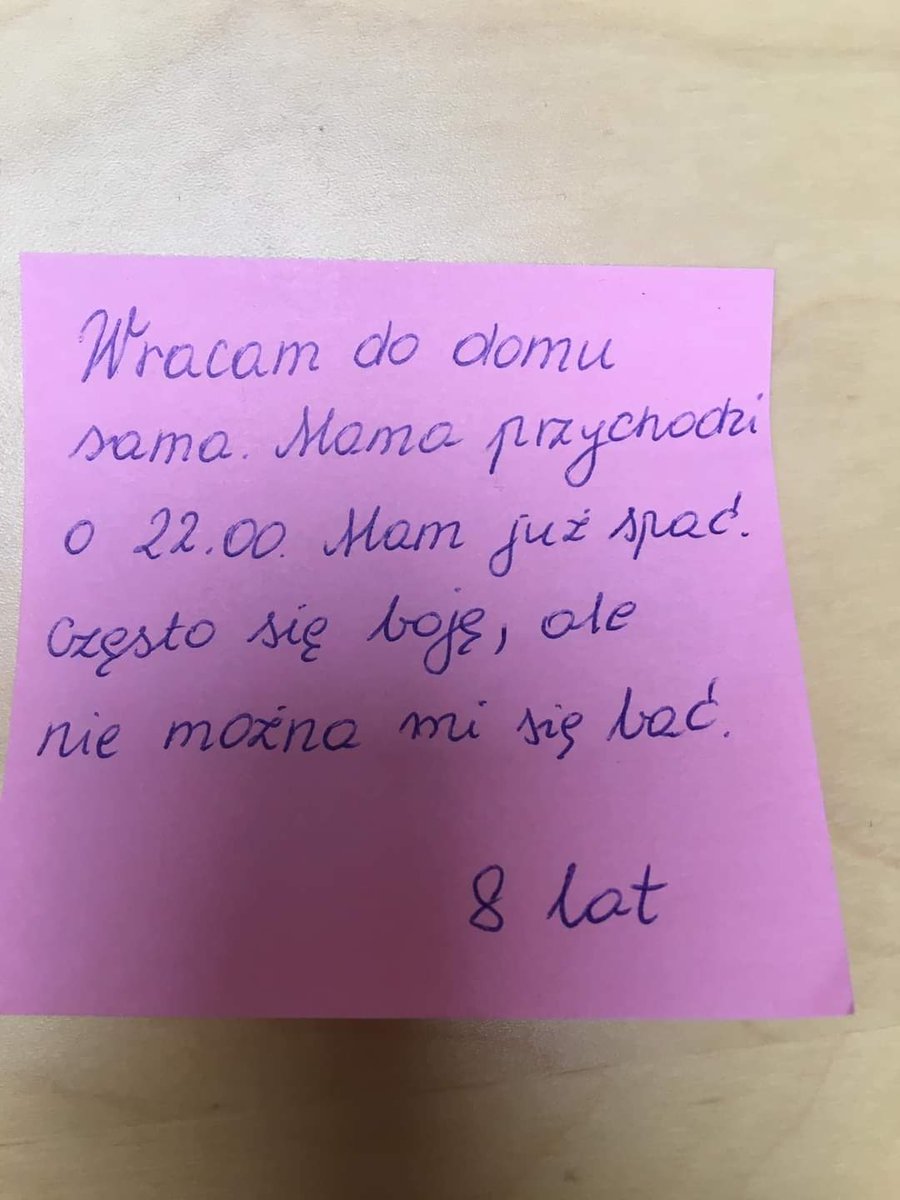 Wracam do domu
sama. Mama przychodzi
o 22.00. Mam już spać.
Często się boję, ale
nie można mi się bać.
8 lat